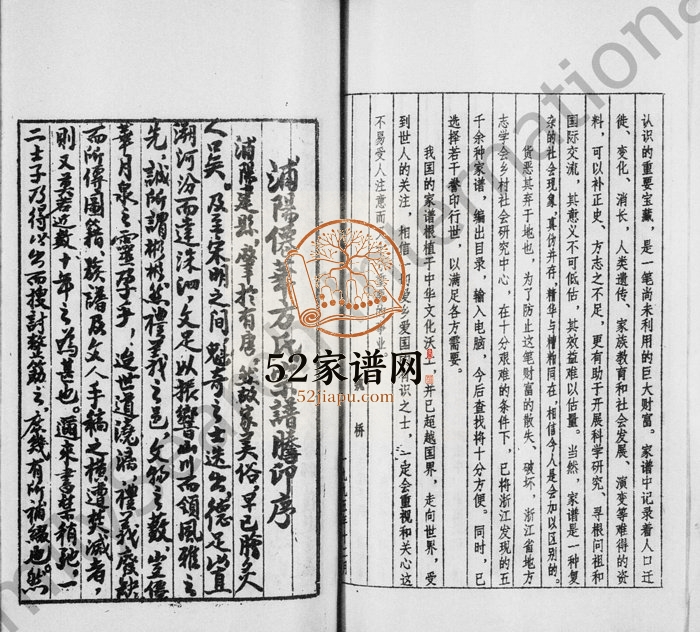 认识的重要宝藏，是一笔尚未利用的巨大财富。家谱中记录着人口迁
徙、变化、消长，人类遗传、家族教育和社会发展、演变等难得的资
料，可以补正史、方志之不足，更有助于开展科学研究、寻根问祖和
国际交流，其意义不可低估，其效益难以估量。当然，家谱是一种复
杂的社会现象，真伪并存，精华与糟粕同在，相信今人是会加以区别的。
货恶其弃于地也，为了防止这笔财富的散失、破坏，浙江省地方
志学会乡村社会研究中心，在十分艰难的条件下，已将浙江发现的五
千余种家谱，编出目录，输入电脑，今后查找将十分方便。同时，已
选择若干誊印行世，以满足各方需要。
我国的家谱根植于中华文化沃土，并已超越国界，走向世界，受
到世人的关注，相信爱乡爱国有识之士，一定会重视和关心这
不易受人注意而事业
桥
浦陽僊華方氏宗譜謄印序
浦陽建縣，肇於有唐，然故家美俗，早已膾炙
人口矣。及至宋明之间，魁奇之士迭出，德足以
溯河汾而達洙泗，文足以振響山川而領風雅之
先，誠所謂彬彬然禮義之邑，文物之數，豈僊
華月泉之靈孕乎，迨世道澆漓，禮義廢缺
而所傳圖籍、族譜及文人手稿之横遭焚滅者，
則又莫若近數十年之為甚也。邇来書禁稍弛，一
二士子乃得以出而搜討整葺之，庶幾有所補綴也。然
52家谱网
52jiapu.com